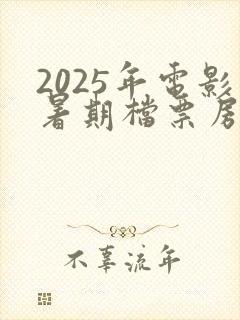 2025年電影
暑期檔票房
不辜流年